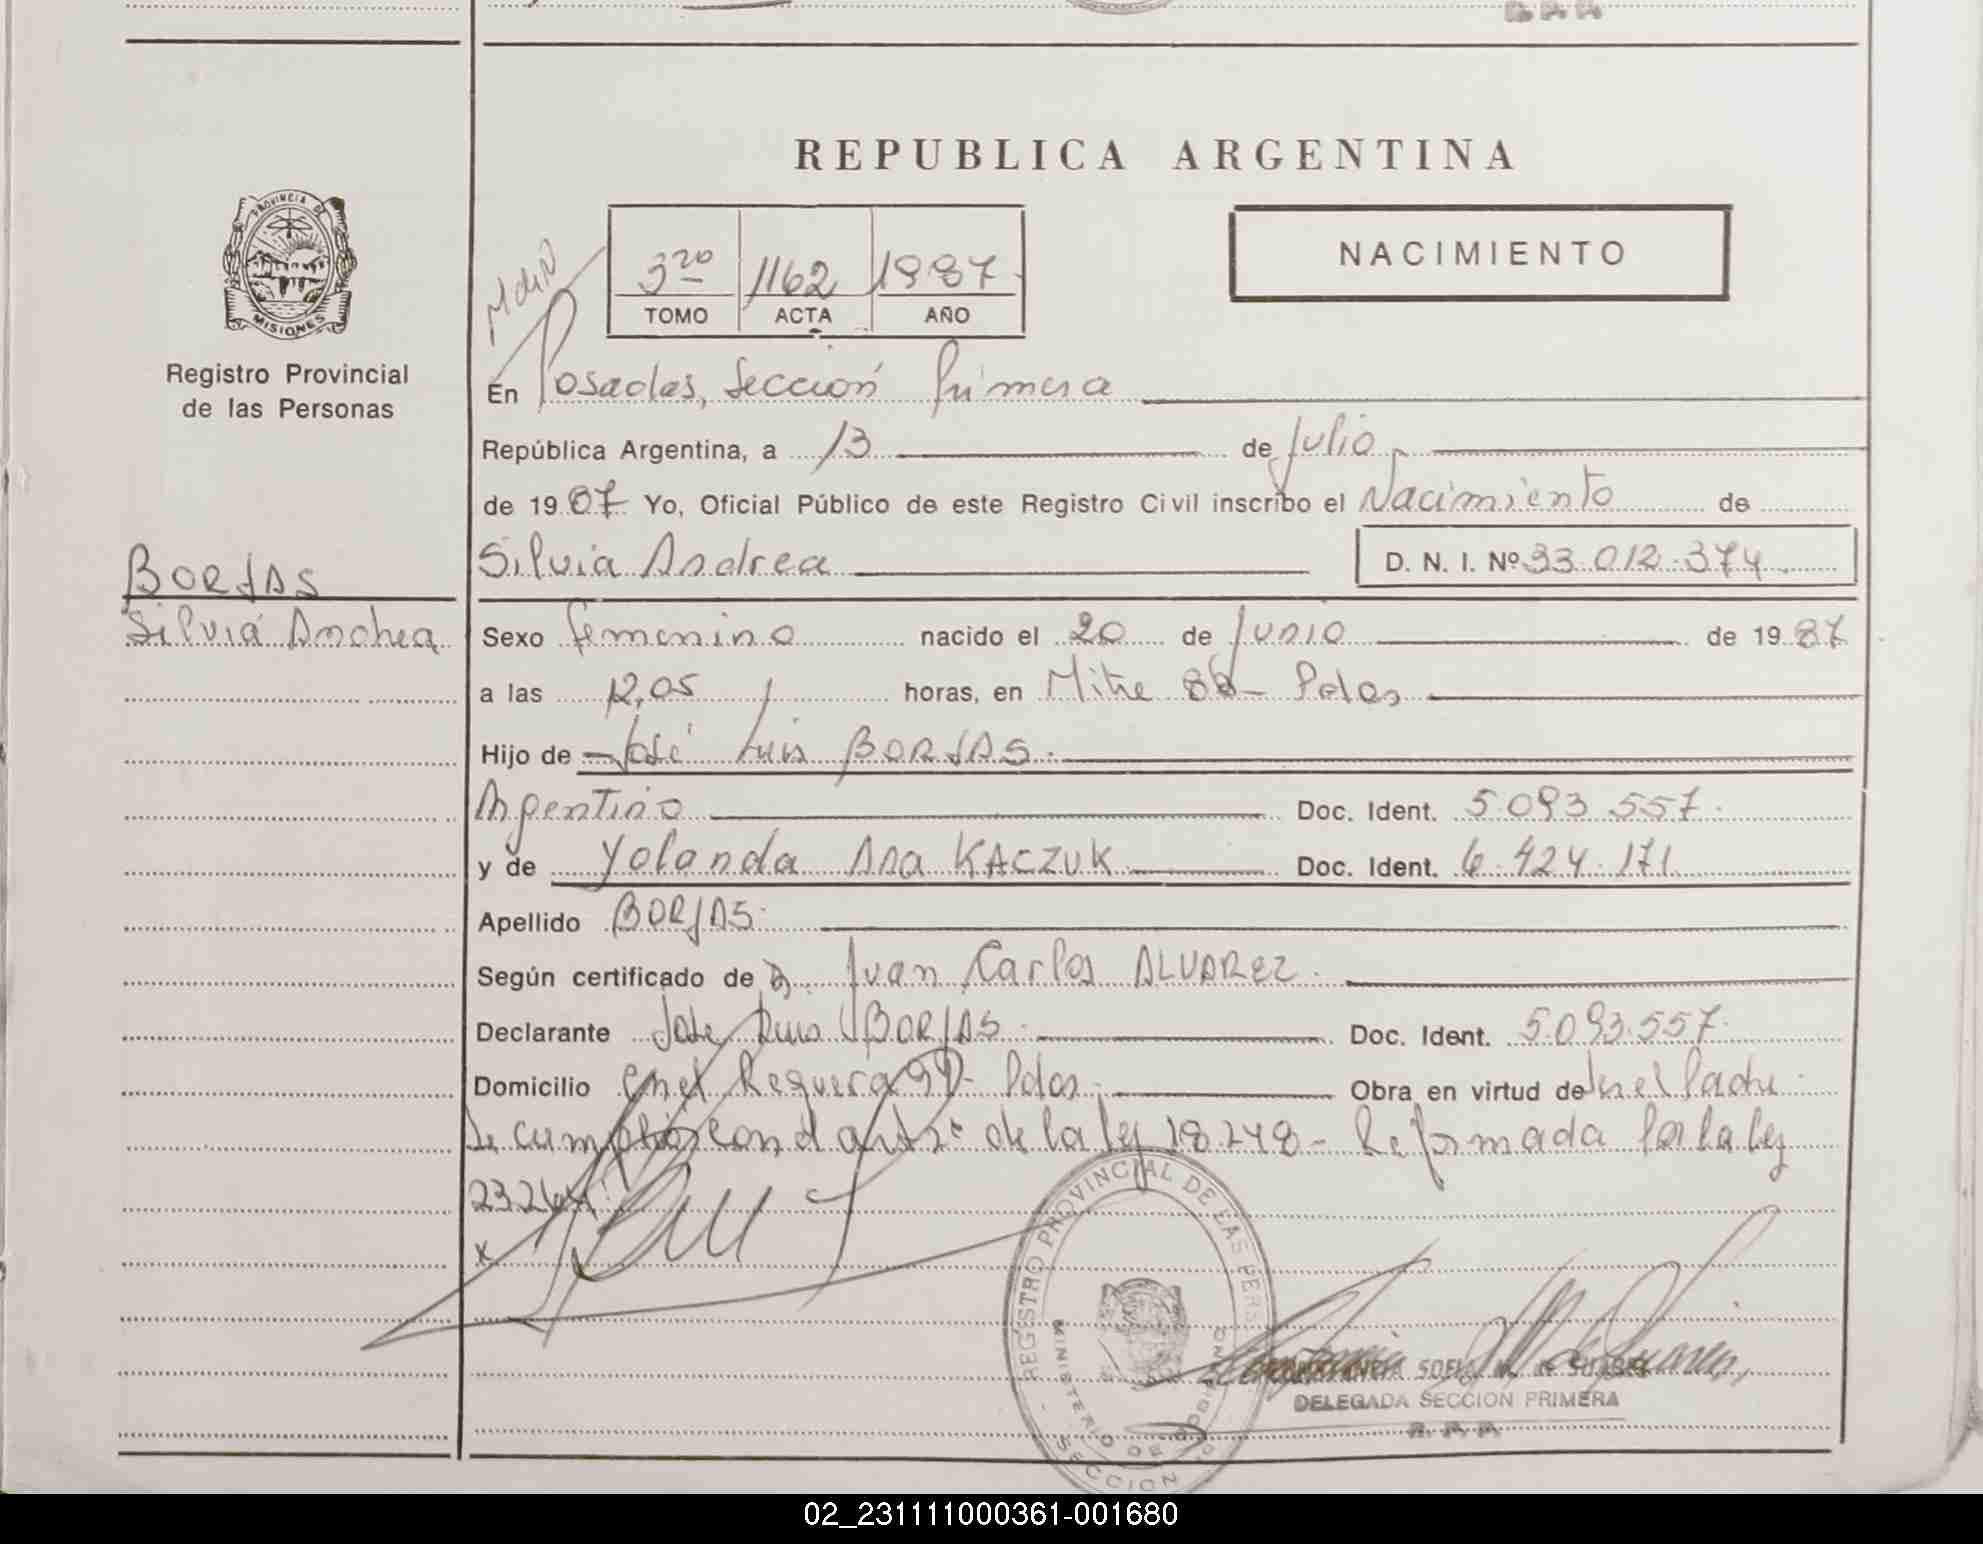 REPUBLICA ARGENTINA
NACIMIENTO
3ro 1162 1987
TOMO ACTA AÑO
PROVINCIA DE
MISIONES
Registro Provincial
de las Personas
BORJAS
Silvia Andrea
En Posadas, Sección Primera
República Argentina, a 13 de Julio
de 1987 Yo, Oficial Público de este Registro Civil inscribo el Nacimiento de
Silvia Andrea D. N. I. Nº 33.012.374
Sexo femenino nacido el 20 de Junio de 1987
a las 12,05 horas, en Mitre 86 - Pdas
Hijo de José Luis BORJAS
Argentino Doc. Ident. 5.093.557
y de Yolanda Ana KACZUK Doc. Ident. 6.424.171
Apellido BORJAS
Según certificado de Juan Carlos ALVAREZ
Declarante José Luis BORJAS Doc. Ident. 5.093.557
Domicilio Requera Pdas Obra en virtud de ser el Padre
Se cumplió con el art 2º de la ley 18.248 - Reformada Por la ley
23.264
x
REGISTRO PROVINCIAL DE LAS PERS
MINISTERIO DE GOBIERNO
SECCION
SOFIA M. de SUAREZ
DELEGADA SECCION PRIMERA
02_231111000361-001680